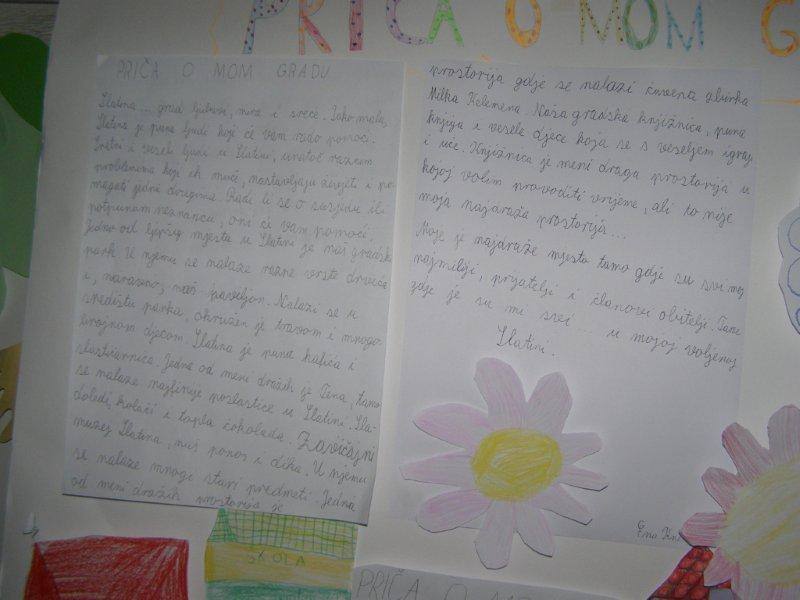 PRIČA O MOM G
PRIČA O MOM GRADU
Slatina ... grad ljubavi, mira i sreće. Iako mala,
Slatina je puna ljudi koji će vam rado pomoći.
Sretni i veseli ljudi u Slatini, unatoč raznim
problemima koji ih muče, nastavljaju živjeti i po-
magati jedni drugima. Radi li se o susjedu ili
potpunom neznancu, oni će vam pomoći.
Jedno od ljepših mjesta u Slatini je naš gradski
park. U njemu se nalaze razne vrste drveća
i, naravno, naš paviljon. Nalazi se u
središtu parka, okružen je travom i mnogo-
brojnom djecom. Slatina je puna kafića i
slastičarnica. Jedna od meni dražih je Tena, tamo
se nalaze najfinije poslastice u Slatini. Sla-
doledi, kolači i topla čokolada. Zavičajni
muzej Slatina, naš ponos i dika. U njemu
se nalaze mnogi stari predmeti. Jedna
od meni dražih prostorija je
prostorija gdje se nalazi zbirka
Milka Kelemena. Naša gradska knjižnica, puna
knjiga i vesele djece koja se s veseljem igraju
i uče. Knjižnica je meni draga prostorija u
kojoj volim provoditi vrijeme, ali to nije
moja najdraža prostorija...
Moje je najdraže mjesto tamo gdje su svi moji
najmiliji, prijatelji i članovi obitelji. Tamo
gdje je su mi svi ... u mojoj voljenoj
Slatini.
Ena
ŠKOLA
PRIČA O MO